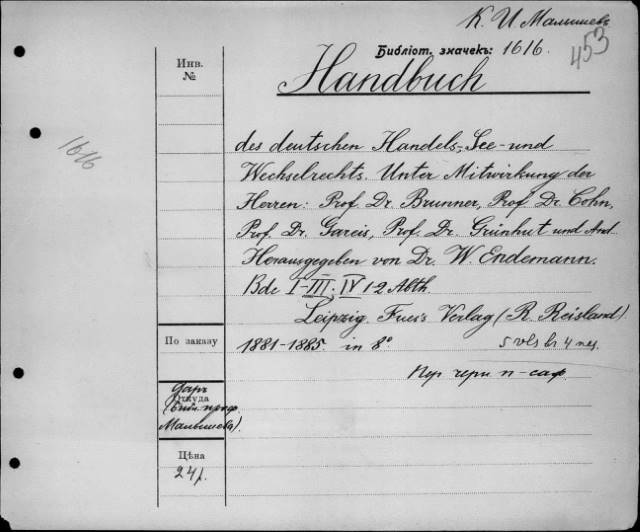 К. И Малышевъ
Библіот. значекъ: 1616.
453
Инв.
№
Handbuch
1616
des deutschen Handels-, See- und
Wechselrechts. Unter Mitwirkung der
Herren: Prof. Dr. Brunner, Prof. Dr. Cohn,
Prof. Dr. Gareis, Prof. Dr. Grünhut und And.
Herausgegeben von Dr. W. Endemann.
Bde I-III; IV 1-2 Abth.
Leipzig. Fues's Verlag (R. Reisland)
По заказу
1881-1885. in 8°
5 vls br 4 пер.
Пер черн п-саф.
Даръ
Откуда
(библ. проф.
Малышева).
Цѣна
24 р.